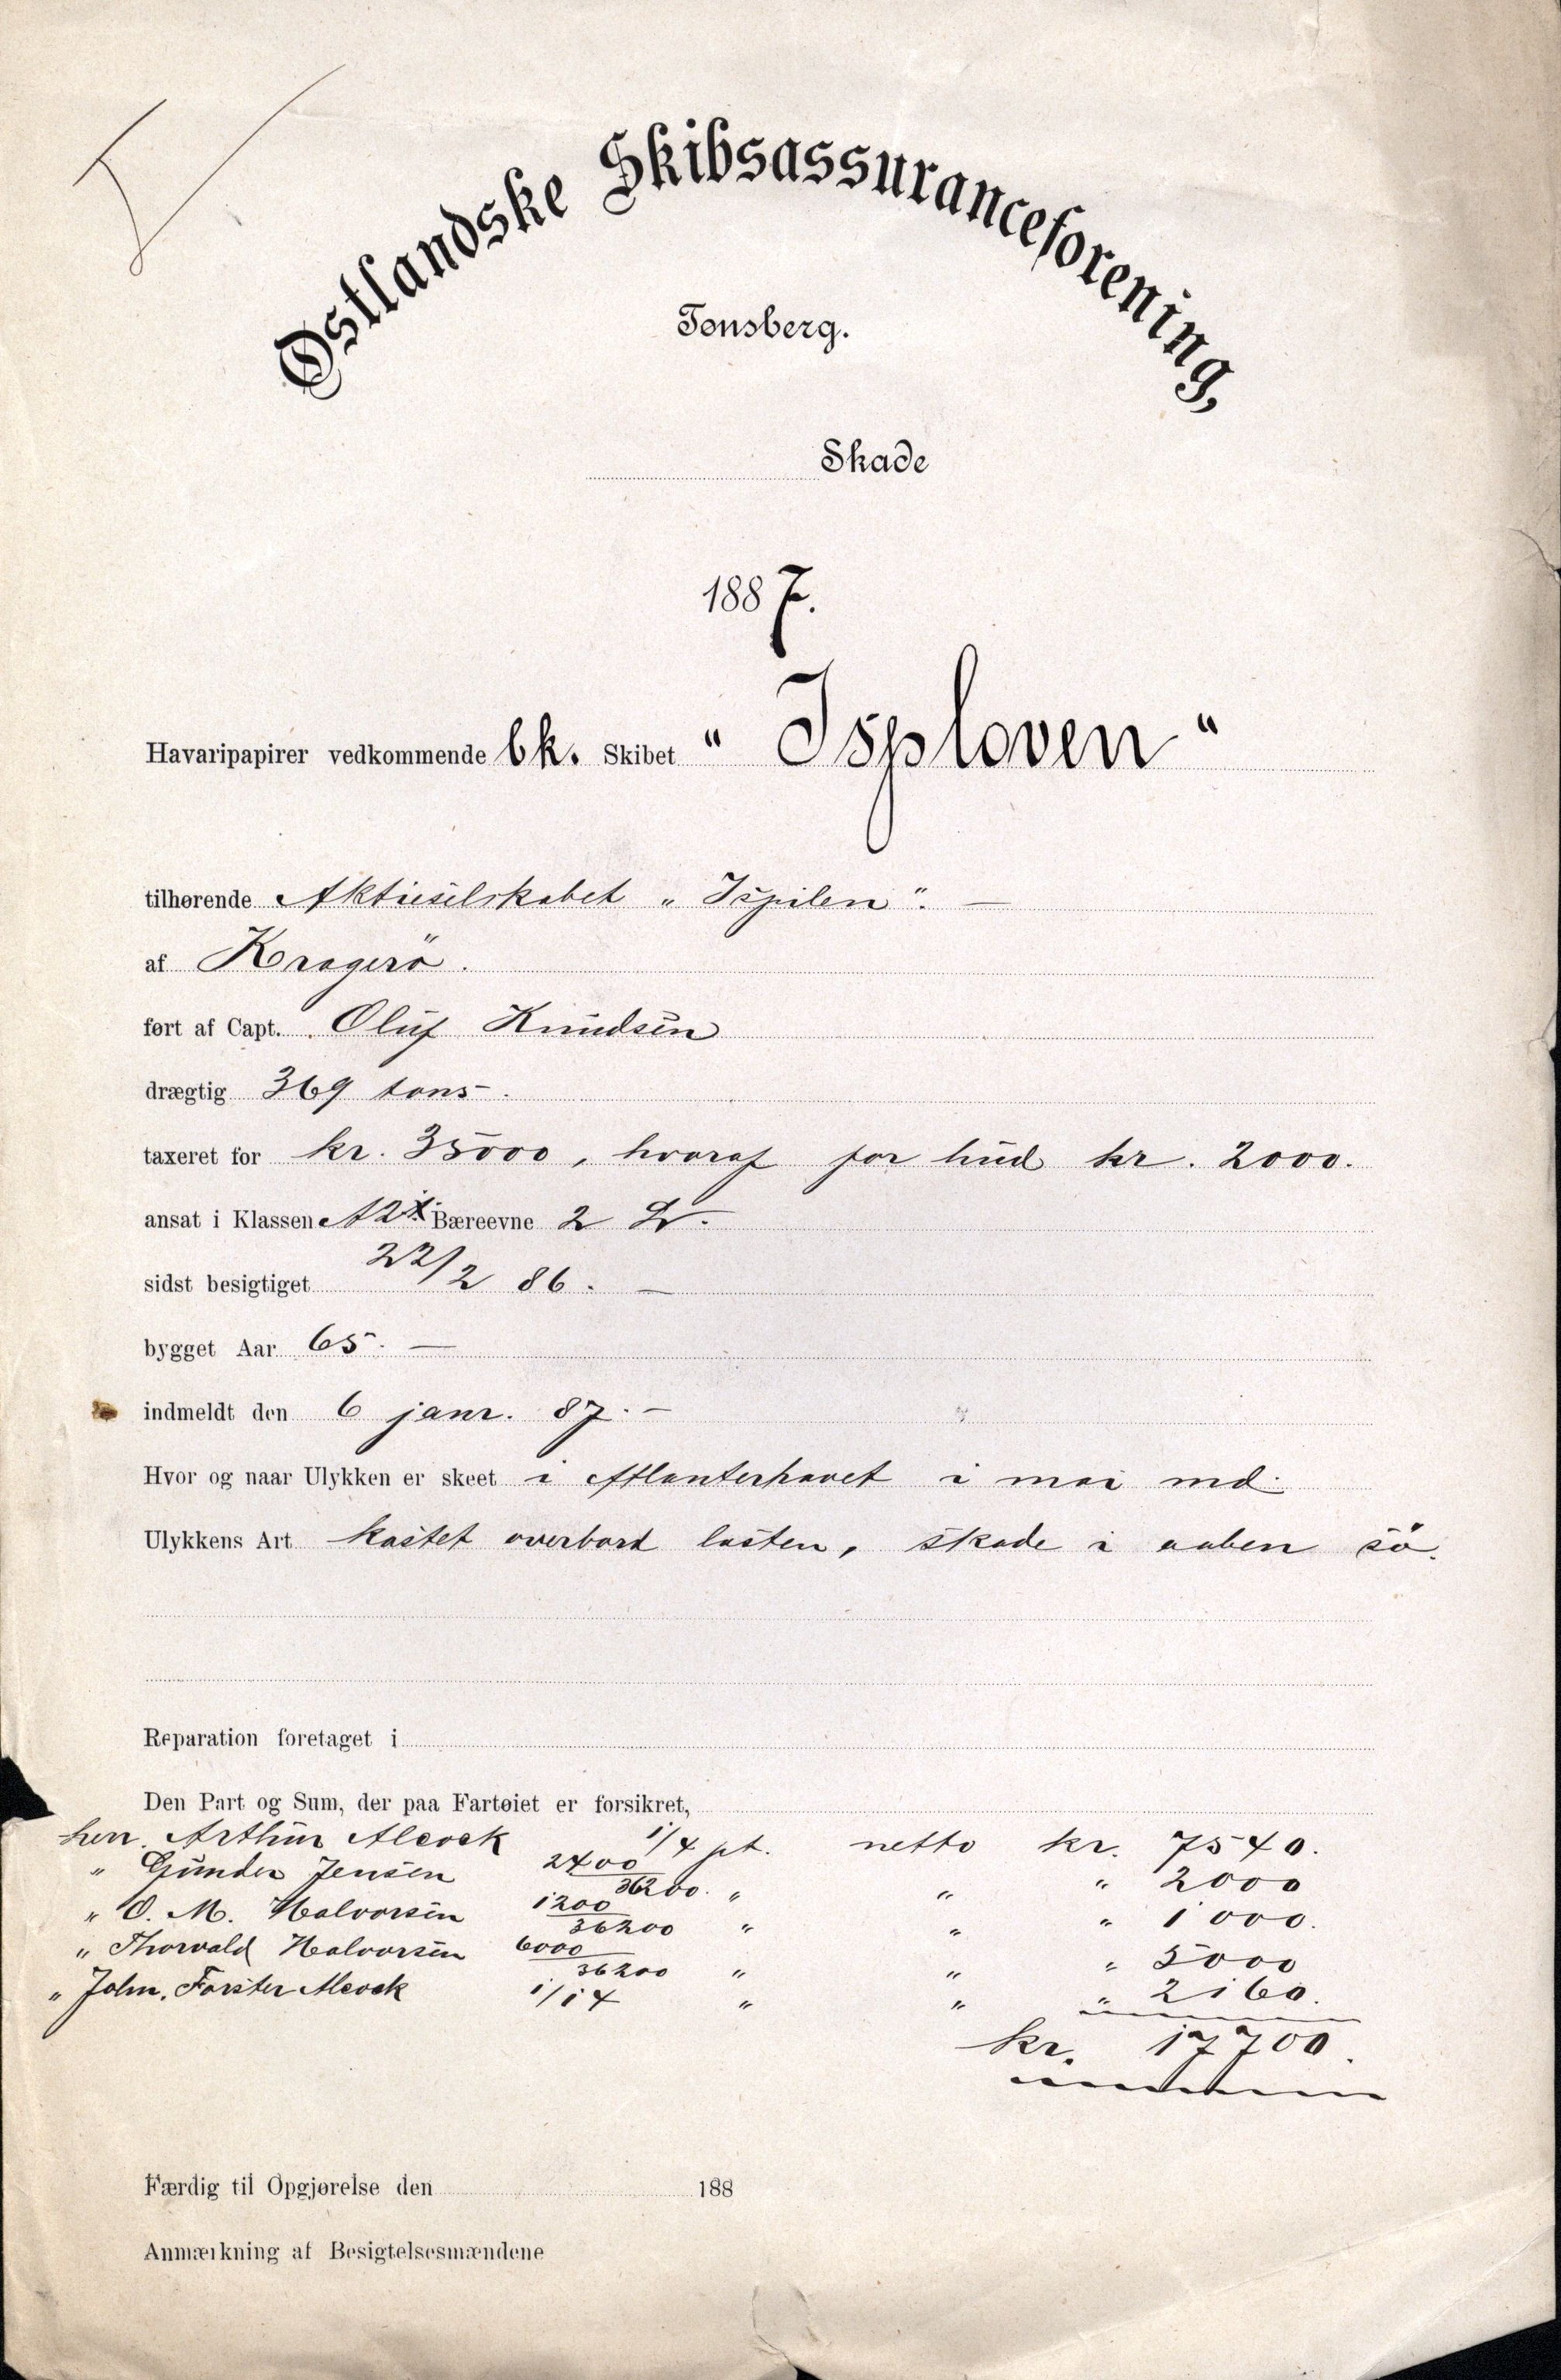 Østlandske Skibsassuranceforening,
Tønsberg.
Skade
1887.
Havaripapirer vedkommende bk. Skibet „Isploven“
tilhørende Aktieselskabet „Ispilen“. —
af Kragerö.
ført af Capt. Oluf Knudsen
drægtig 369 tons.
taxeret for kr. 35000, hvoraf for hud kr. 2000.
ansat i Klassen A2 Bæreevne 2
sidst besigtiget 22/2 86. —
bygget Aar 65. —
indmeldt den 6 janr. 87. —
Hvor og naar Ulykken er skeet i Atlanterhavet i mai md.
Ulykkens Art kastet overbord lasten, skade i aaben sö.
Reparation foretaget i
Den Part og Sum, der paa Fartøiet er forsikret,
herr. Arthur Alcock 1/4 pt. netto kr. 7540.
„ Gunder Jensen 2400/36200. „ „ „ 2000
„ O. M. Halvorsen 1200/36200 „ „ „ 1000.
„ Thorvald Halvorsen 6000/36200 „ „ „ 5000
„ John. Forster Alcock 1/14 „ „ „ 2160.
kr. 17700.
Færdig til Opgjørelse den 188
Anmærkning af Besigtelsesmændene